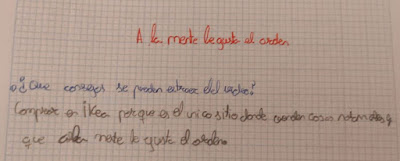 A la mente le gusta el orden
¿Que consejos se pueden extraer del video?
Comprar en ikea porque es el unico sitio donde cosas
que a la mente le gusta el orden